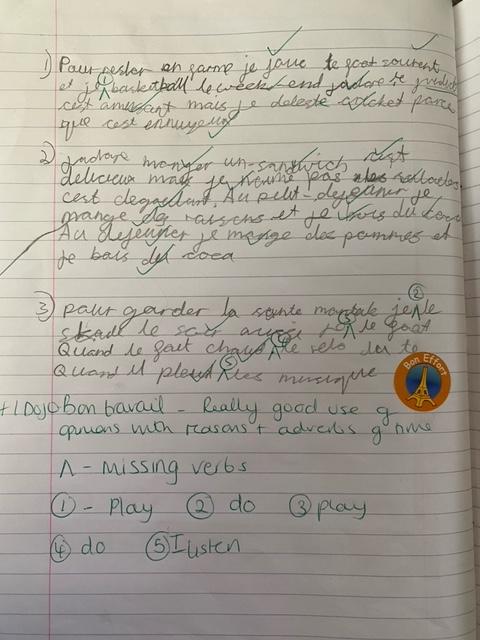 1) Pour rester en garme je joue le goot souvent
et je ① Λ basketball le week end j'adore le
c'est amusant mais je deteste cricket parce
que c'est ennuyeux
2) J'adore manger un sandwich c'est
delicieux mais je n'aime pas les
c'est degoutant. Au petit-dejeuner je
mange des raisens et je bois du coca
Au dejeuner je mange des pommes et
je bois du coca
3) pour garder la sante mentale je ② Λ le
skate le soir aussi ③ Λ le goot
Quand le fait chaud ④ Λ le velo
Quand il pleut ⑤ Λ les musique
Bon Effort
+1 Dojo Bon travail - Really good use of
opinions with reasons + adverbs of time
Λ - missing verbs
① - Play ② do ③ play
④ do ⑤ I listen